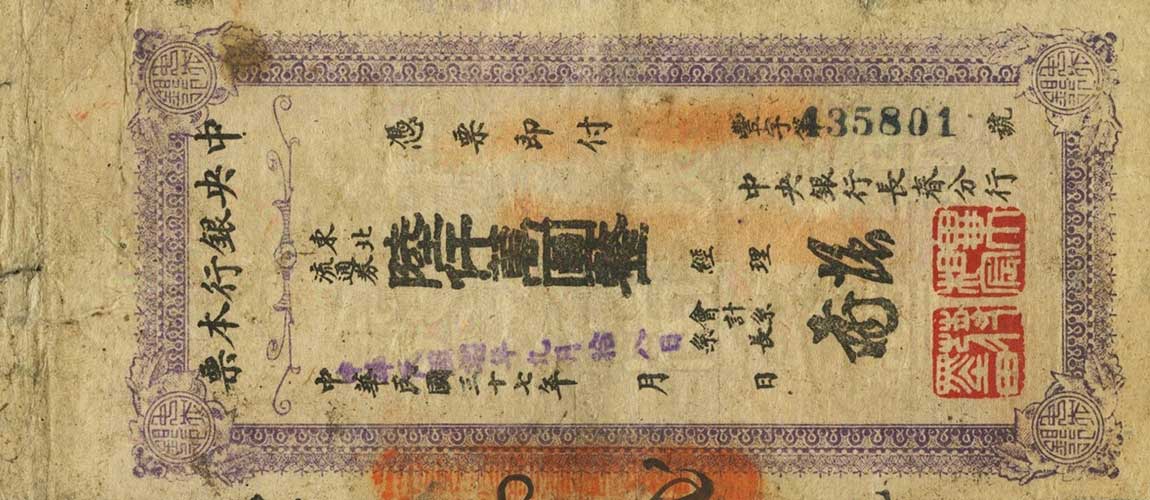 中央銀行本票
憑票即付
豐字第435801號
中央銀行長春分行
東北
流通券
陸仟萬圓整
經理
會計
系長
中華民國三十七年 月 日
九月拾八日